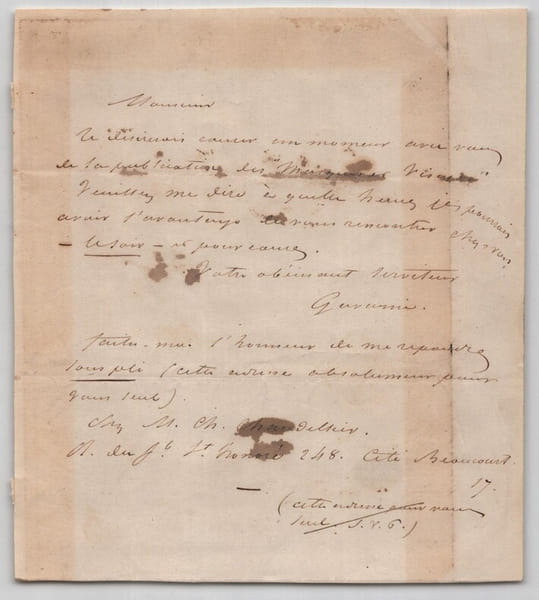 Monsieur
Je desirerais causer un moment avec vous
de la publication des "Masques et Visages"
Veuillez me dire à quelle heure je pourrais
avoir l'avantage de vous rencontrer chez vous
– le soir – et pour cause.
Votre obéissant serviteur
Gavarni.
faites-moi l'honneur de me repondre
sous pli (cette adresse absolument pour
vous seul).
chez M. Ch. Chandellier.
R. du fb. St honoré 248. Cité Beaucourt.
17.
(cette adresse pour vous
seul S.V.P.)